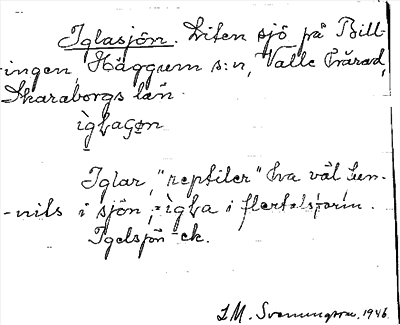 Iglasjön. Liten sjö på Bill-
ingen, Häggum s:n, Valle härad,
Skaraborgs län.
ìgɫaʂɷn
Iglar, "reptiler" ha väl fun-
-nits i sjön, = ìgɫa i flertalsform.
Igelsjön - ek.
S.M. Svenningsson, 1946